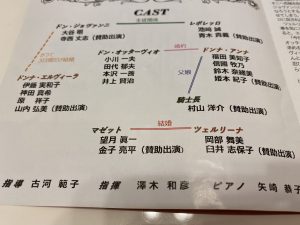 CAST
主従関係
ドン・ジョヴァンニ
大谷 聡
寺西 丈志（賛助出演）
レポレッロ
池﨑 誠
青木 貴義（賛助出演）
ドン・オッターヴィオ
小川 一夫
田代 郁夫
本沢 一茂
井上 賢治
婚約
ドンナ・アンナ
福田 美知子
信國 牧乃
鈴木 奈緒美
姫本 紀子（賛助出演）
父娘
ドンナ・エルヴィーラ
伊藤 美和子
神田 真希
原 祥子
山内 弘美（賛助出演）
騎士長
村山 洋介（賛助出演）
マゼット
望月 眞一
金子 亮平（賛助出演）
結婚
ツェルリーナ
岡部 舞美
臼井 志保子（賛助出演）
指導 古河 範子 指揮 澤木 和彦 ピアノ 矢崎 恭子